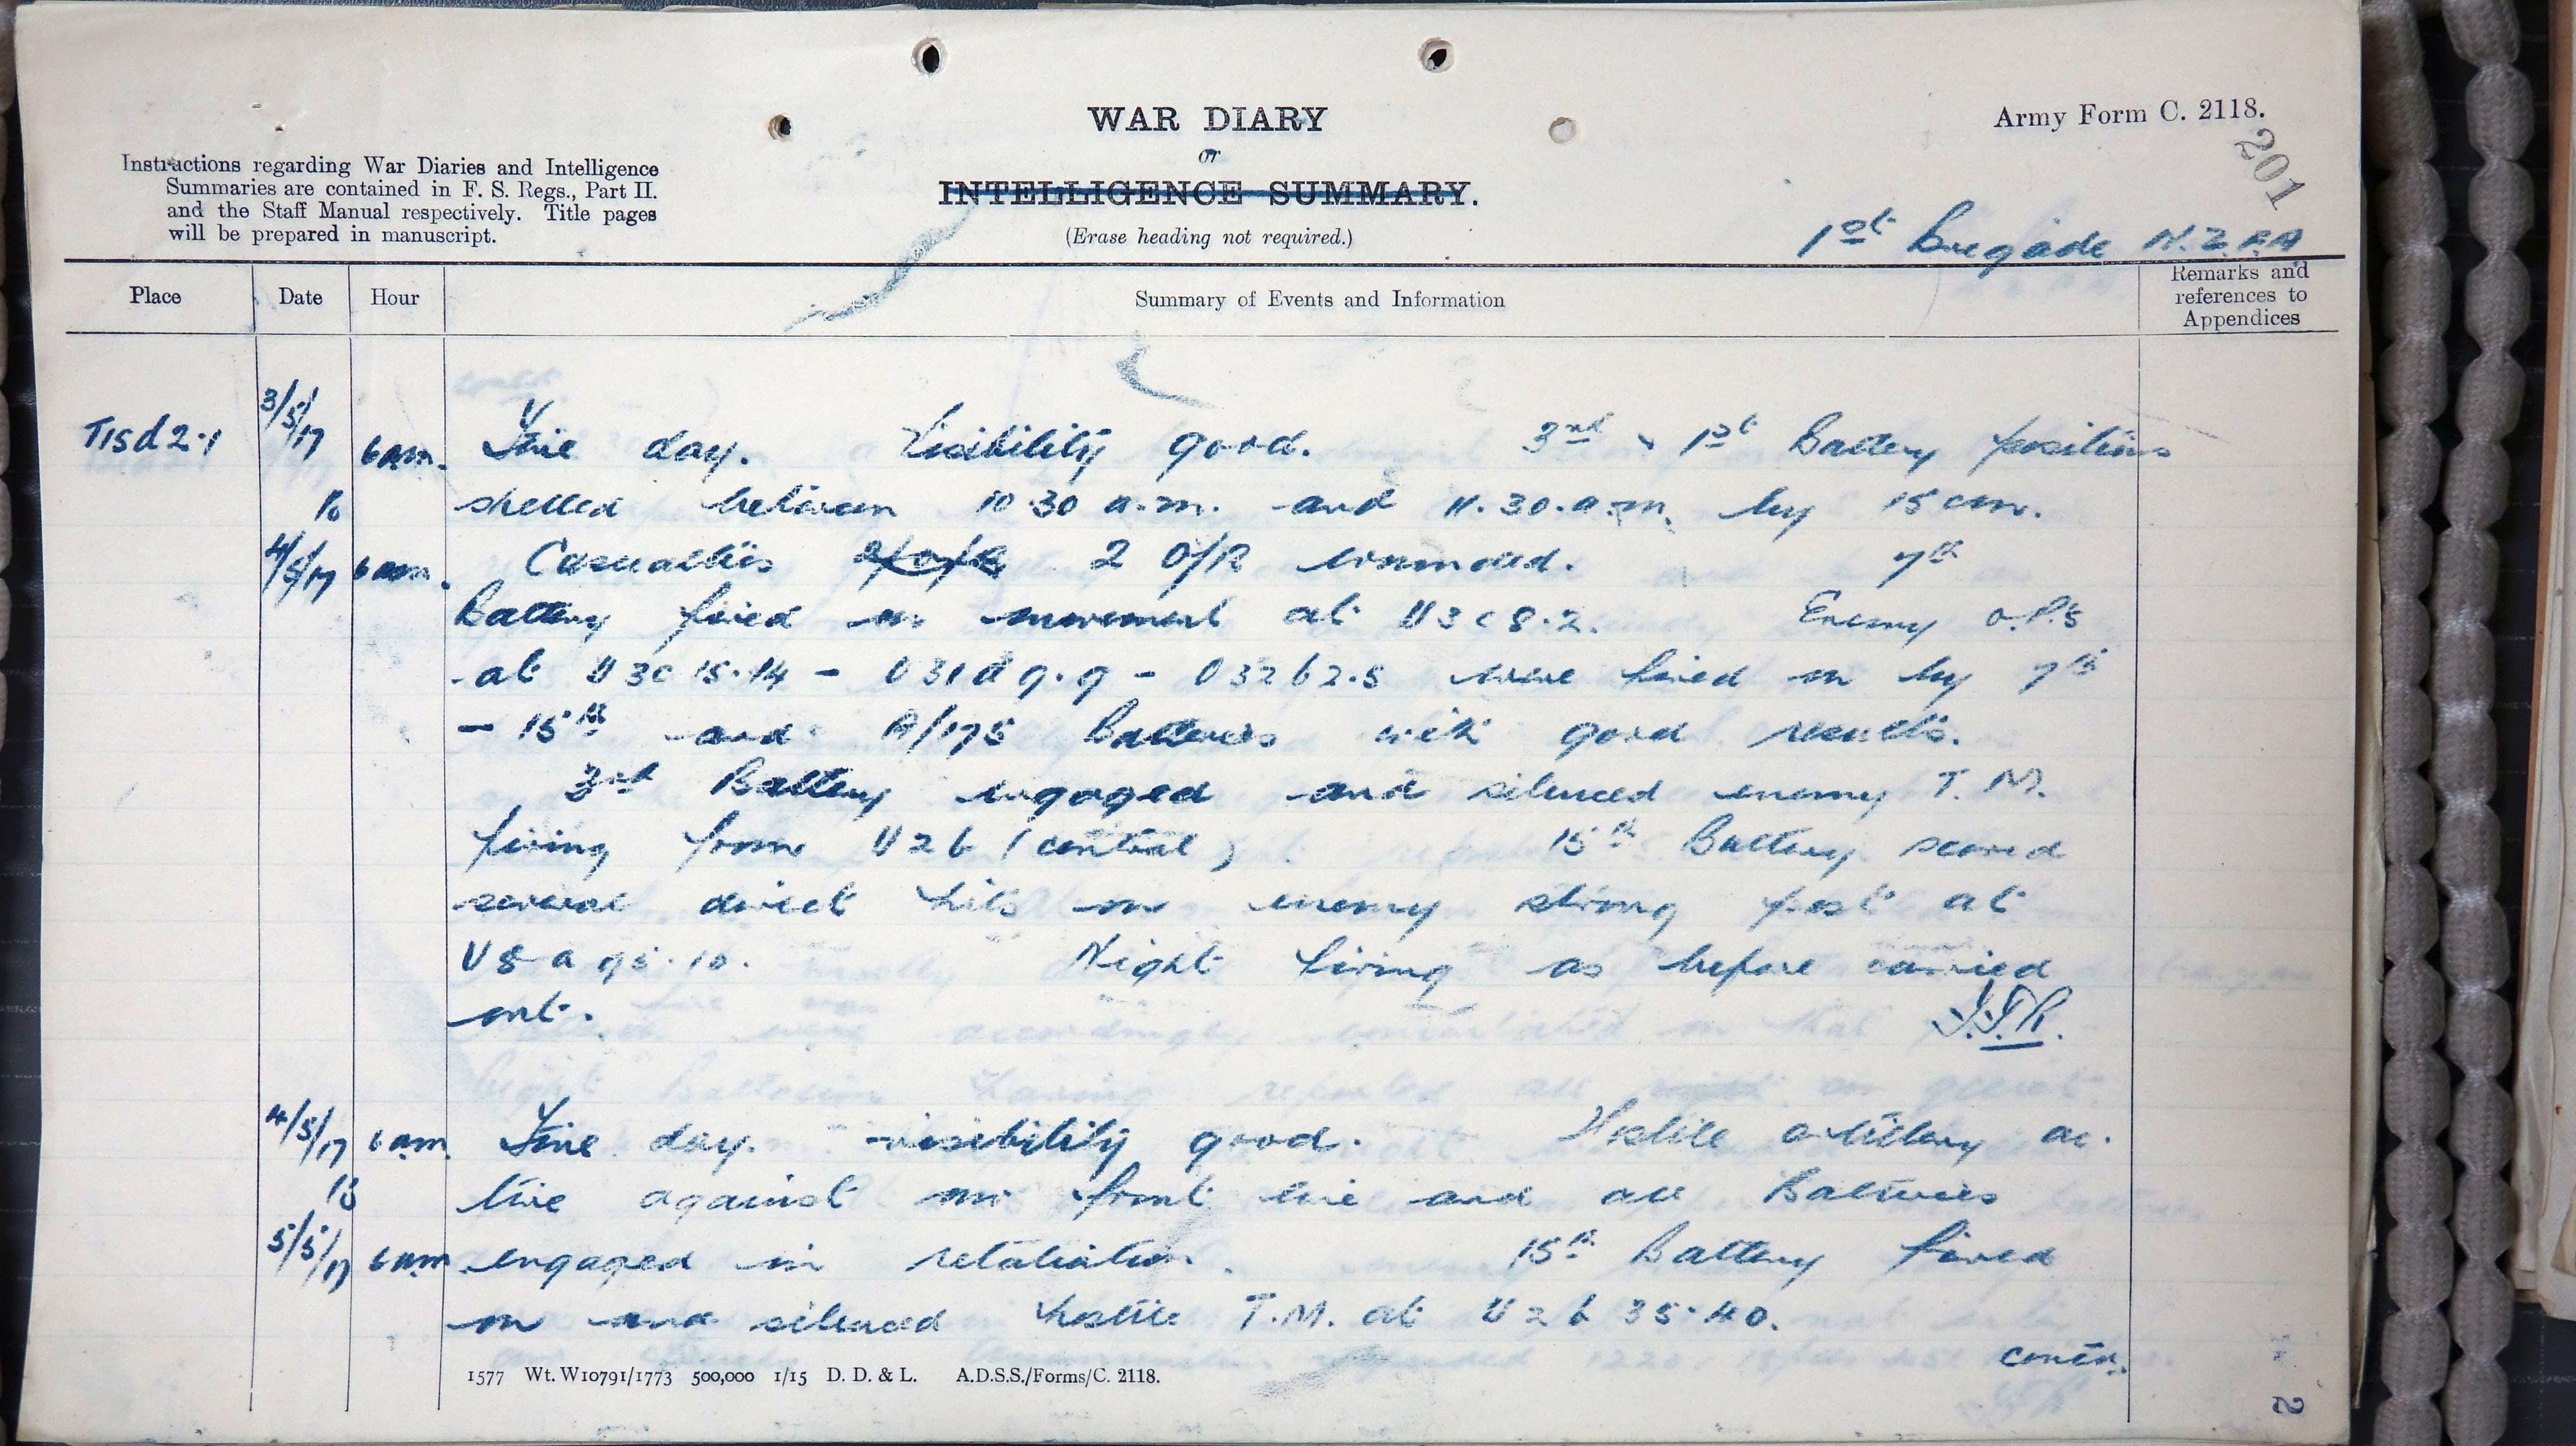 WAR DIARY
or
INTELLIGENCE SUMMARY.
(Erase heading not required.)
Army Form C. 2118.
201
Instructions regarding War Diaries and Intelligence
Summaries are contained in F. S. Regs., Part II.
and the Staff Manual respectively. Title pages
will be prepared in manuscript.
1st Brigade N.Z.F.A
Place Date Hour Summary of Events and Information Remarks and references to Appendices
T15d2.1 3/5/17 6am. Fine day. Visibility good. 3rd & 1st Battery positions
to shelled between 10.30 a.m. and 11.30.a.m. by 15 cm.
4/5/17 6am. Casualties 2 O/R 2 O/R wounded. 7th
Battery fired on movement at U3c8.2. Enemy O.P.s
at U3c15.14 - O31d9.9 - O32b2.5 were fired on by 7th
- 15th and A/175 Batteries with good results.
3rd Battery engaged and silenced enemy T.M.
firing from U2b (central). 15th Battery scored
several direct hits on enemy strong post at
U8a95.10. Night firing as before carried
out.
4/5/17 6am. Fine day. visibility good. Hostile artillery ac.
to tive against our front line and all Batteries
5/5/17 6am engaged in retaliation. 15th Battery fired
on and silenced hostile T.M. at U2b35.40.
contd.
1577 Wt. W10791/1773 500,000 1/15 D. D. & L. A.D.S.S./Forms/C. 2118.
2